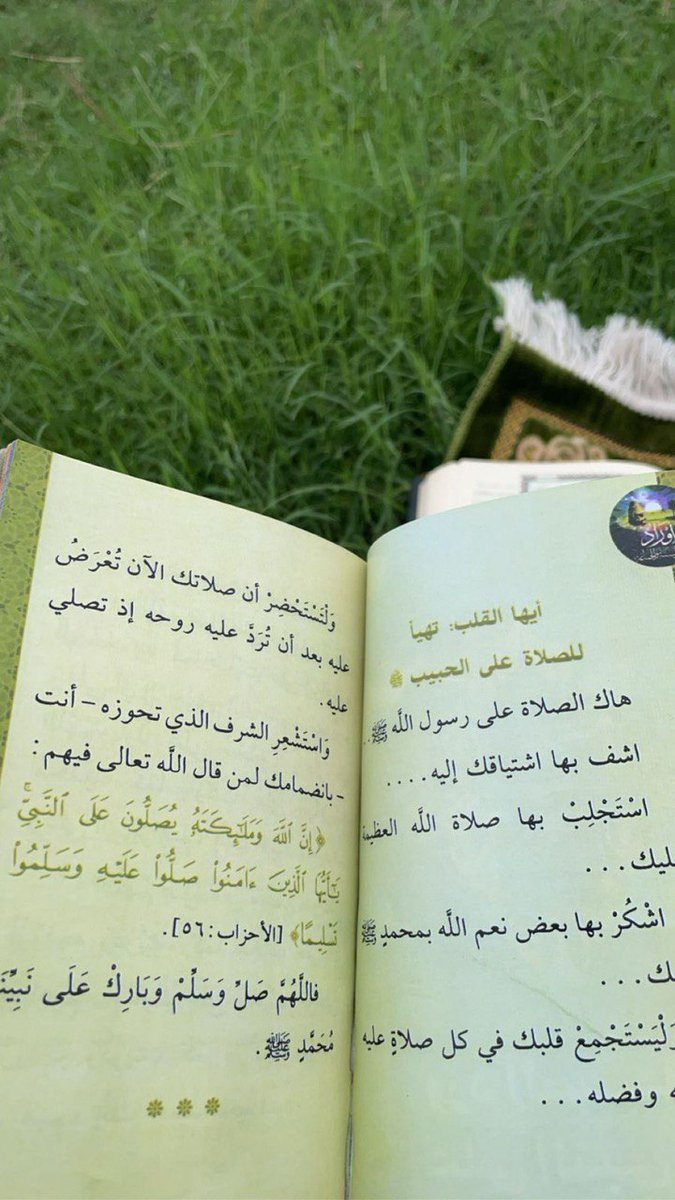 أوراد
أيها القلب: تهيأ
للصلاة على الحبيب ﷺ
هاك الصلاة على رسول اللَّه ﷺ.
اشف بها اشتياقك إليه....
اسْتَجْلِبْ بها صلاة اللَّه العظيمة
عليك...
اشْكُرْ بها بعض نعم اللَّه بمحمدٍ ﷺ
وَلْيَسْتَجْمِعْ قلبك في كل صلاةٍ عليه
وفضله...
وَلْتَسْتَحْضِرْ أن صلاتك الآن تُعْرَضُ
عليه بعد أن تُرَدَّ عليه روحه إذ تصلي
عليه.
وَاسْتَشْعِرِ الشرف الذي تحوزه – أنت
– بانضمامك لمن قال اللَّه تعالى فيهم:
﴿إِنَّ ٱللَّهَ وَمَلَٰٓئِكَتَهُۥ يُصَلُّونَ عَلَى ٱلنَّبِيِّۚ
يَٰٓأَيُّهَا ٱلَّذِينَ ءَامَنُوا۟ صَلُّوا۟ عَلَيْهِ وَسَلِّمُوا۟
تَسْلِيمًا﴾ [الأحزاب: ٥٦].
فاللَّهُمَّ صَلِّ وَسَلِّمْ وَبَارِكْ عَلَى نَبِيِّنَا
مُحَمَّدٍ ﷺ.